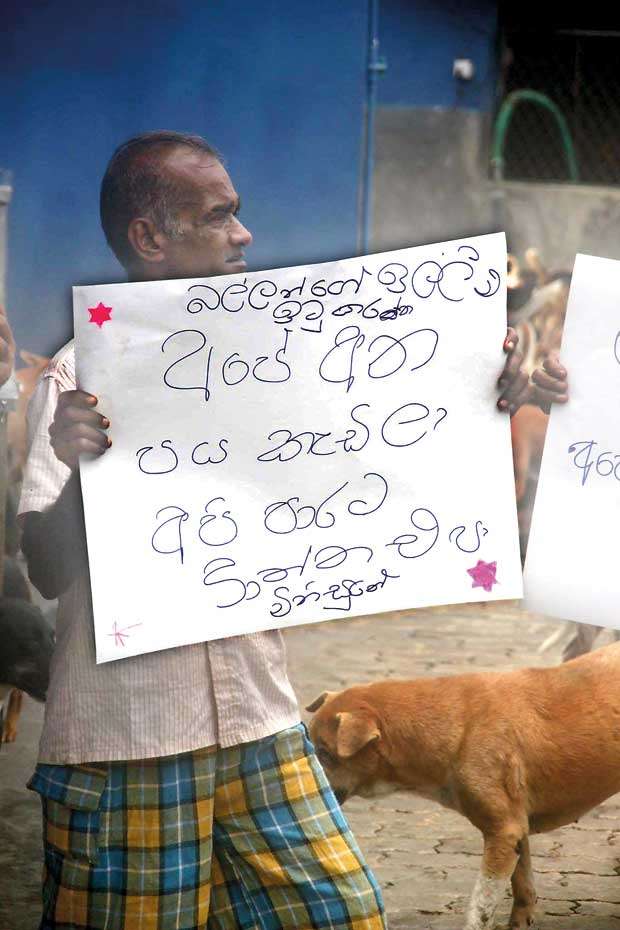 බල්ලන්ගේ ඉල්ලීම
ඉටු කරන්න
අපේ අත
පය කැඩිලා
අපි පාරට
දාන්න එපා
මිනිසුනේ
අපේ